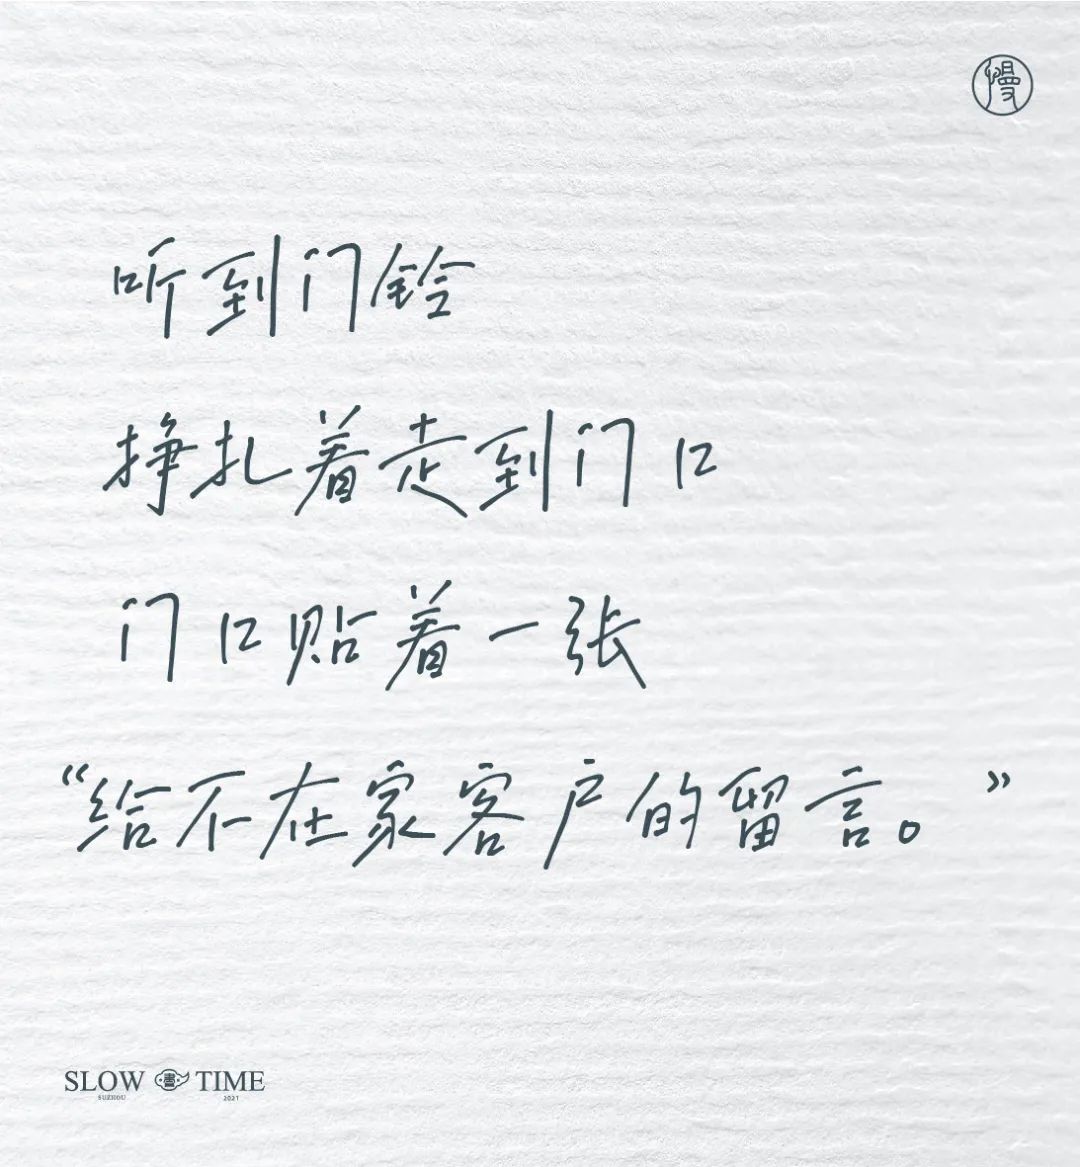 慢
听到门铃
挣扎着走到门口
门口贴着一张
“给不在家客户的留言。”
SLOW 書 TIME
SUZHOU 2021